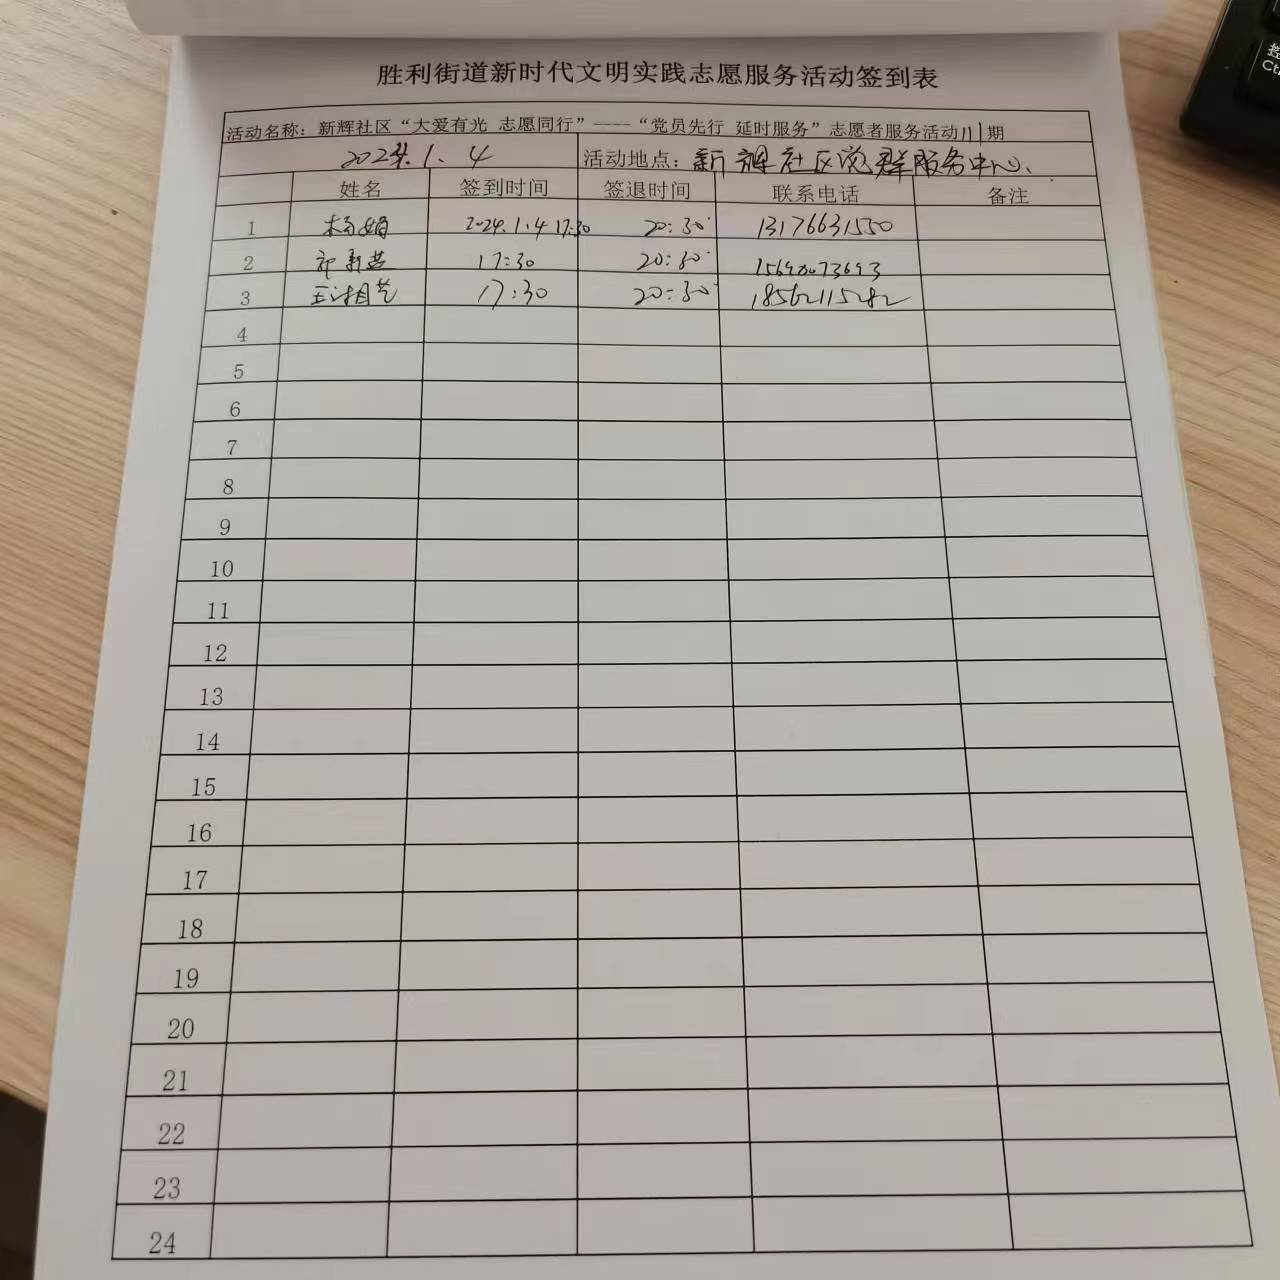 胜利街道新时代文明实践志愿服务活动签到表
活动名称：新辉社区“大爱有光 志愿同行”----“党员先行 延时服务”志愿者服务活动111期
2024.1.4 活动地点：新辉社区党群服务中心.
姓名 签到时间 签退时间 联系电话 备注
1 杨娟 2024.1.4 17:30 20:30 13176631550
2 17:30 20:30
3 17:30 20:30
4
5
6
7
8
9
10
11
12
13
14
15
16
17
18
19
20
21
22
23
24
控
Ct